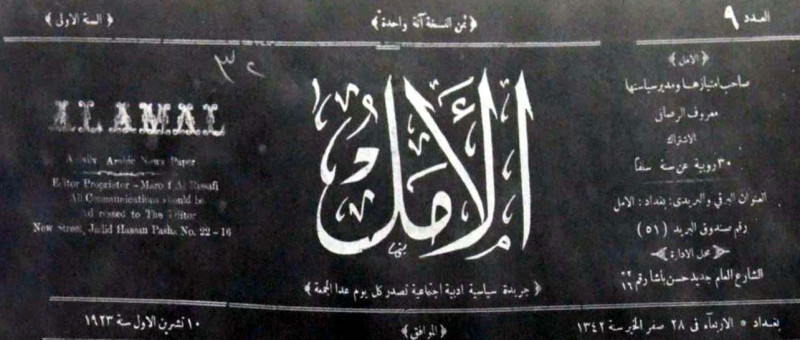 العدد ٩
﴿ ثمن النسخة آنة واحدة ﴾
﴿ السنة الاولى ﴾
﴿ الامل ﴾
صاحب امتيازها ومدير سياستها
معروف الرصافى
الاشتراك
٣٠ روبية عن سنة سلفا
العنوان البرقي والبريدى: بغداد: الامل
رقم صندوق البريد (٥١)
﴿ محل الادارة ﴾
الشارع العام جديد حسن باشا رقم ٢٢/١٦
الأمل
﴿ جريدة سياسية ادبية اجتماعية تصدر كل يوم عدا الجمعة ﴾
٣٢
AL AMAL
A Daily Arabic News Paper
Editor Proprietor - Maro f Al Rasafi
All Communications should be
Ad ressed to The Editor
New Street, Jadid Hassan Pasha No. 22 - 16
بغداد * الاربعآء فى ٢٨ صفر الخير سنة ١٣٤٢
﴿ الموافق ﴾
١٠ تشرين الاول سنة ١٩٢٣